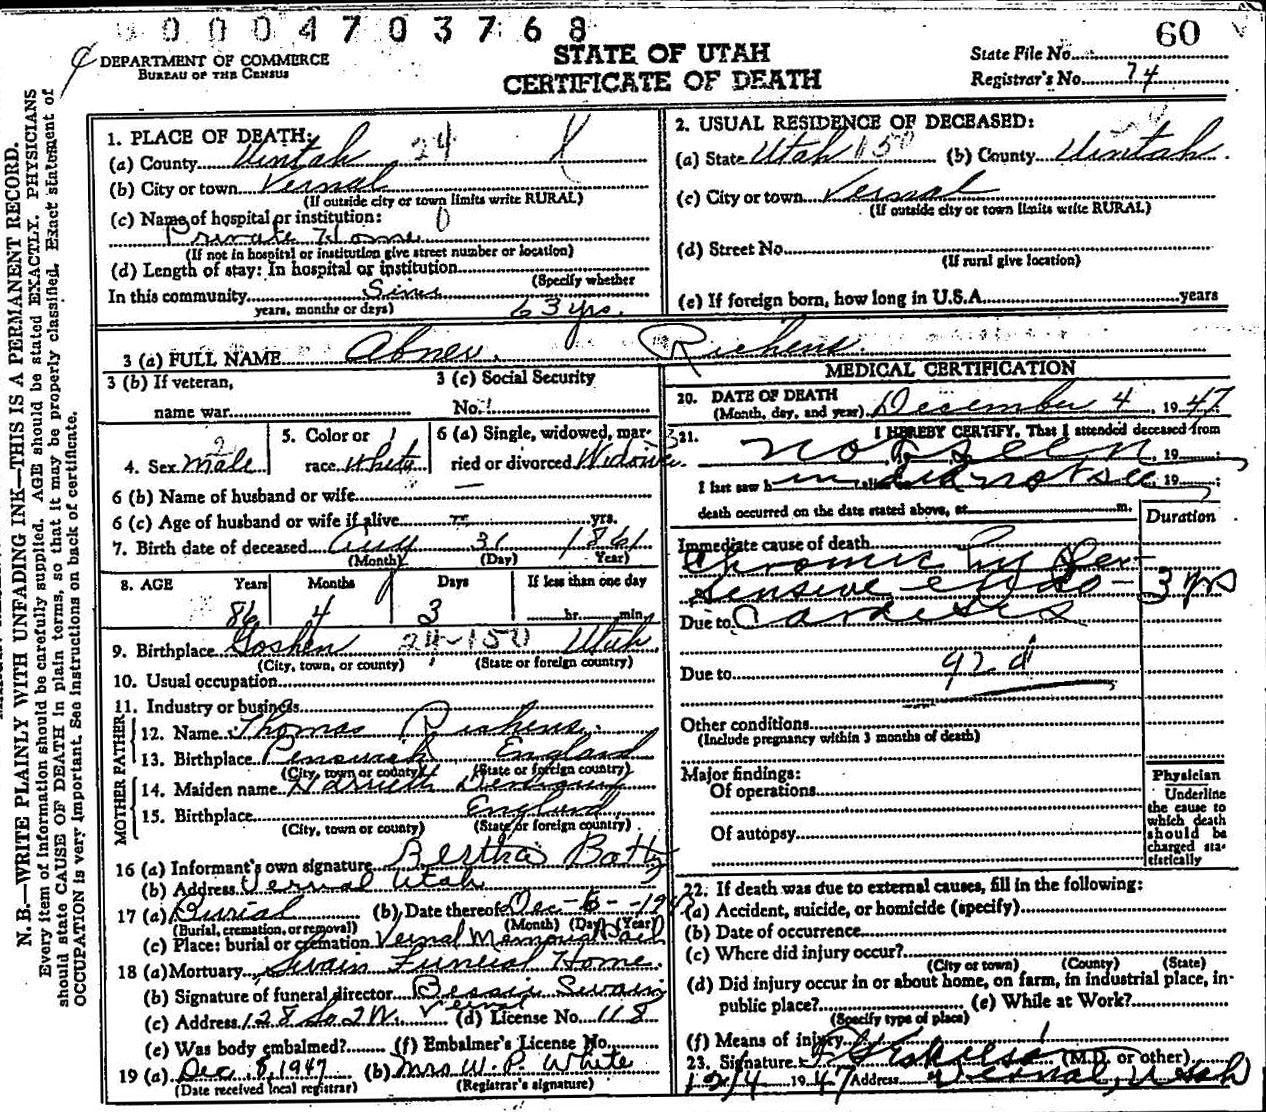 0004703768
60
DEPARTMENT OF COMMERCE
BUREAU OF THE CENSUS
STATE OF UTAH
CERTIFICATE OF DEATH
State File No.
Registrar's No. 74
N. B.—WRITE PLAINLY WITH UNFADING INK—THIS IS A PERMANENT RECORD.
Every item of information should be carefully supplied. AGE should be stated EXACTLY. PHYSICIANS
should state CAUSE OF DEATH in plain terms, so that it may be properly classified. Exact statement of
OCCUPATION is very important. See instructions on back of certificate.
1. PLACE OF DEATH:
(a) County Uintah 24
(b) City or town Vernal
(If outside city or town limits write RURAL)
(c) Name of hospital or institution: 0
Private Home
(If not in hospital or institution give street number or location)
(d) Length of stay: In hospital or institution
(Specify whether
In this community
years, months or days) 63 yrs.
2. USUAL RESIDENCE OF DECEASED:
(a) State Utah 150 (b) County Uintah.
(c) City or town Vernal
(If outside city or town limits write RURAL)
(d) Street No.
(If rural give location)
(e) If foreign born, how long in U.S.A. years
3 (a) FULL NAME Abner Richens
3 (b) If veteran,
name war
3 (c) Social Security
No.
4. Sex Male 2
5. Color or
race White 1
6 (a) Single, widowed, mar-
ried or divorced Widower 3
6 (b) Name of husband or wife —
6 (c) Age of husband or wife if alive yrs.
7. Birth date of deceased Aug 31 1861
(Month) (Day) Year)
8. AGE Years Months Days If less than one day
86 4 3 hr. min.
9. Birthplace Goshen 24-150 Utah
(City, town, or county) (State or foreign country)
10. Usual occupation
11. Industry or business
FATHER
12. Name Thomas Richens
13. Birthplace England
(City, town or county) (State or foreign country)
MOTHER
14. Maiden name
15. Birthplace England
(City, town or county) (State or foreign country)
16 (a) Informant's own signature Bertha Batty
(b) Address Vernal Utah
17 (a) Burial (b) Date thereof Dec-6-1947
(Burial, cremation, or removal) (Month) (Day) (Year)
(c) Place: burial or cremation Vernal Memorial
18 (a) Mortuary Swain Funeral Home
(b) Signature of funeral director Bessie Swain
(c) Address 128 So 2 W. Vernal (d) License No. 118
(e) Was body embalmed? (f) Embalmer's License No.
19 (a) Dec. 8, 1947 (b) Mrs W. P. White
(Date received local registrar) (Registrar's signature)
MEDICAL CERTIFICATION
20. DATE OF DEATH
(Month, day, and year) December 4, 1947
21. I HEREBY CERTIFY, That I attended deceased from
not seen, 19 ;
I last saw h alive on did not see, 19 ;
death occurred on the date stated above, at m.
Duration
Immediate cause of death
Chronic hyper-
tensive endo- 3 yrs
Due to carditis
92 d
Due to
Other conditions
(Include pregnancy within 3 months of death)
Major findings:
Of operations
Of autopsy
Physician
Underline
the cause to
which death
should be
charged sta-
tistically
22. If death was due to external causes, fill in the following:
(a) Accident, suicide, or homicide (specify)
(b) Date of occurrence
(c) Where did injury occur?
(City or town) (County) (State)
(d) Did injury occur in or about home, on farm, in industrial place, in
public place? (e) While at Work?
(Specify type of place)
(f) Means of injury
23. Signature (M.D. or other)
12/4 1947 Address Vernal, Utah